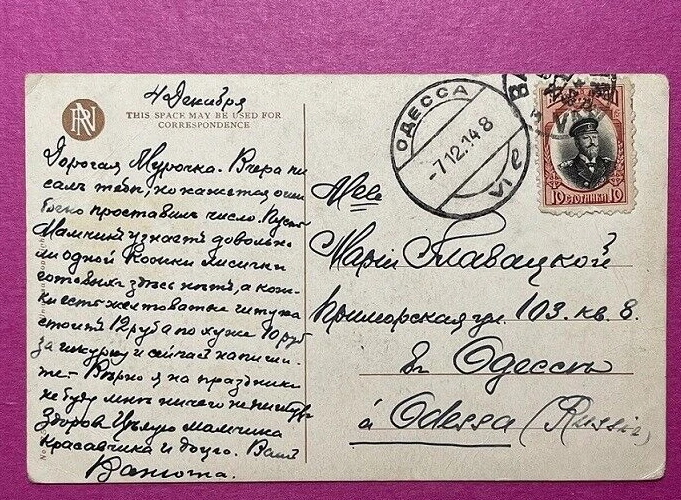 4 Декабря
THIS SPACE MAY BE USED FOR
CORRESPONDENCE
Дорогая Мурочка. Вчера пи
салъ тебѣ, но кажется оши
бочно проставилъ число. Пусть
Мамчикъ узнаетъ довольно
ли одной кожки лисички
готовыхъ здѣсь нѣтъ, а кож
ки есть желтоватые штука
стоитъ 12 руб а по хуже 10 руб
за шкурку и сейчас напиши
те. Вѣрно я на праздники
не буду мнѣ ничего не пишутъ
Здорова Цѣлую мамчика
красавчика и доцю. Вашъ
Ванюша.
ОДЕССА
-7.12.14 8
VI
10 СТОТИНКИ 10
Mlle
Маріи Главацкой
Приморская ул. 103. кв. 8.
въ Одессѣ
à Odessa (Russia)